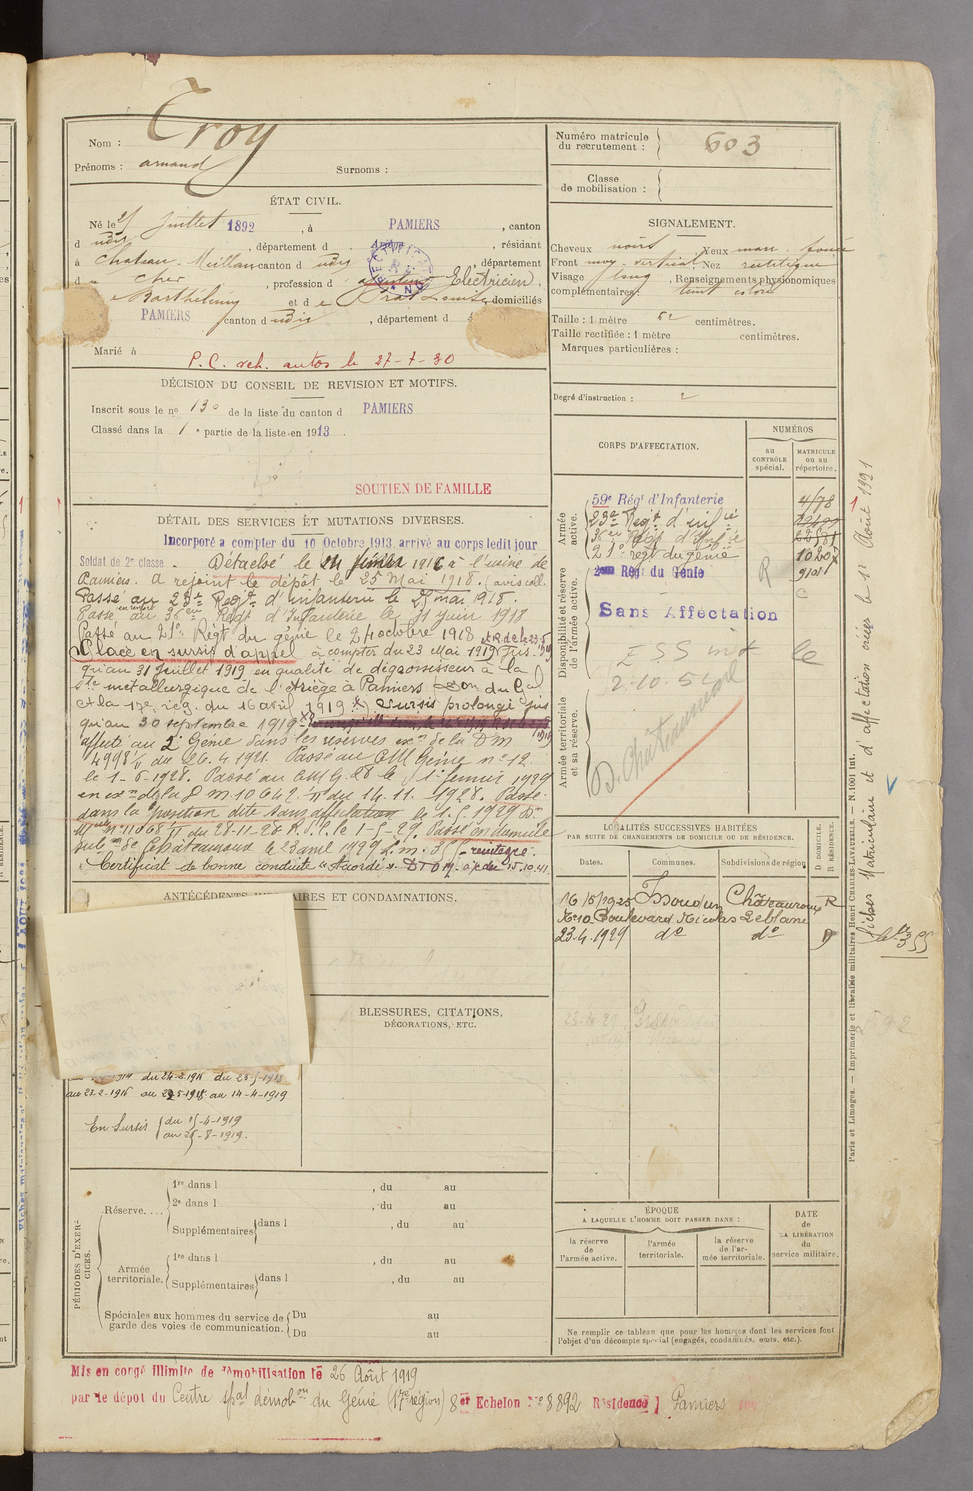 Nom : Troy
Prénoms : Arnaud Surnoms :
Numéro matricule du recrutement : 603
Classe de mobilisation :
ÉTAT CIVIL.
Né le 25 juillet 1892, à PAMIERS, canton
d udit, département d Ariège, résidant
à Chateau-Meillan canton d udit, département
d u Cher, profession d Electricien,
e Barthélémy et d e Prat Louise domiciliés
PAMIERS canton d udit, département d
Marié à
P.C. veh. autos le 27-7-30
DÉCISION DU CONSEIL DE REVISION ET MOTIFS.
Inscrit sous le no 130 de la liste du canton d PAMIERS
Classé dans la 1e partie de la liste en 1913.
SOUTIEN DE FAMILLE
DÉTAIL DES SERVICES ET MUTATIONS DIVERSES.
Incorporé a compter du 10 Octobre 1913, arrivé au corps ledit jour
Soldat de 2e classe. Détaché le 24 février 1916 à l'usine de
Pamiers. A rejoint le dépôt le 25 Mai 1918.
Passé au 23e Regt d'Infanterie le 25 mai 1918.
Passé en renfort au 36e Régt d'Infanterie le 21 juin 1918
Passé au 21e Régt du génie le 24 octobre 1918
Placé en sursis d'appel à compter du 23 Mai 1919 jus-
qu'au 31 Juillet 1919 en qualité de dégrossisseur à la
Sté métallurgique de l'Ariège à Pamiers
et la 17e rég. du 16 avril 1919 Sursis prolongé jus
qu'au 30 septembre 1919
affecté au 2e Génie dans les réserves exon de la DM
4998/11 du 26.4.1921. Passé au CM Génie no 12.
le 1-6-1928. Passé au CM G. 28 le 1er janvier 1929
en exon de la DM 10642 du 14.11.1928. Passé
dans la position dite sans affectation le 1.5.1929 Don
Mlle no 11068/11 du 28-11-28 R.P.C. le 1-5-29. Passé en domicile
sub on de Châteauroux le 23 avril 1929 L.m. 355 - réintégré.
Certificat de bonne conduite "Accordé".
ANTÉCÉDENTS AIRES ET CONDAMNATIONS.
BLESSURES, CITATIONS,
DÉCORATIONS, ETC.
du 24-2-1916 du 25-5-1918
au 23-2-1916 au 24-5-1918 au 14-4-1919
En Sursis du 15-4-1919
au 25-8-1919.
PÉRIODES D'EXERCICES.
Réserve.... 1re dans l , du au
2e dans l , du au
Supplémentaires dans l , du au
Armée territoriale. 1re dans l , du au
Supplémentaires dans l , du au
Spéciales aux hommes du service de garde des voies de communication. Du au
Du au
SIGNALEMENT.
Cheveux noirs Yeux marr. foncé
Front moy. vertical Nez rectiligne
Visage long, Renseignements physionomiques
complémentaires : teint coloré
Taille : 1 mètre 62 centimètres.
Taille rectifiée : 1 mètre centimètres.
Marques particulières :
Degré d'instruction : 2
CORPS D'AFFECTATION.
NUMÉROS
AU CONTRÔLE spécial.
MATRICULE OU AU répertoire.
Armée active.
59e Régt d'Infanterie 4178
23e Regt d'infie
36eme Régt d'Infie
21e régt du génie 10207
Disponibilité et réserve de l'armée active.
2me Rég du Génie R 9101
Sans Affectation
Armée territoriale et sa réserve.
2-10-54
LOCALITÉS SUCCESSIVES HABITÉES
PAR SUITE DE CHANGEMENTS DE DOMICILE OU DE RÉSIDENCE.
Dates. Communes. Subdivisions de région
D DOMICILE.
R RÉSIDENCE.
16/5/1925 Issoudun Châteauroux R
No 10 Boulevard Nicolas Leblanc
23.4.1929 do do D
ÉPOQUE
A LAQUELLE L'HOMME DOIT PASSER DANS :
la réserve de l'armée active.
l'armée territoriale.
la réserve de l'armée territoriale.
DATE de LA LIBÉRATION du service militaire.
Ne remplir ce tableau que pour les hommes dont les services font
l'objet d'un décompte spécial (engagés, condamnés, omis, etc.).
Fiches Matriculaire et d'affectation créées le 1er Août 1921
Paris et Limoges. — Imprimerie et librairie militaires Henri CHARLES-LAVAUZELLE. — N. 1001 int.
Mis en congé illimité de démobilisation le 26 Août 1919
par le dépôt du Centre spal démobon du Génie (17e région) 8er Echelon No 8892 Résidence Pamiers